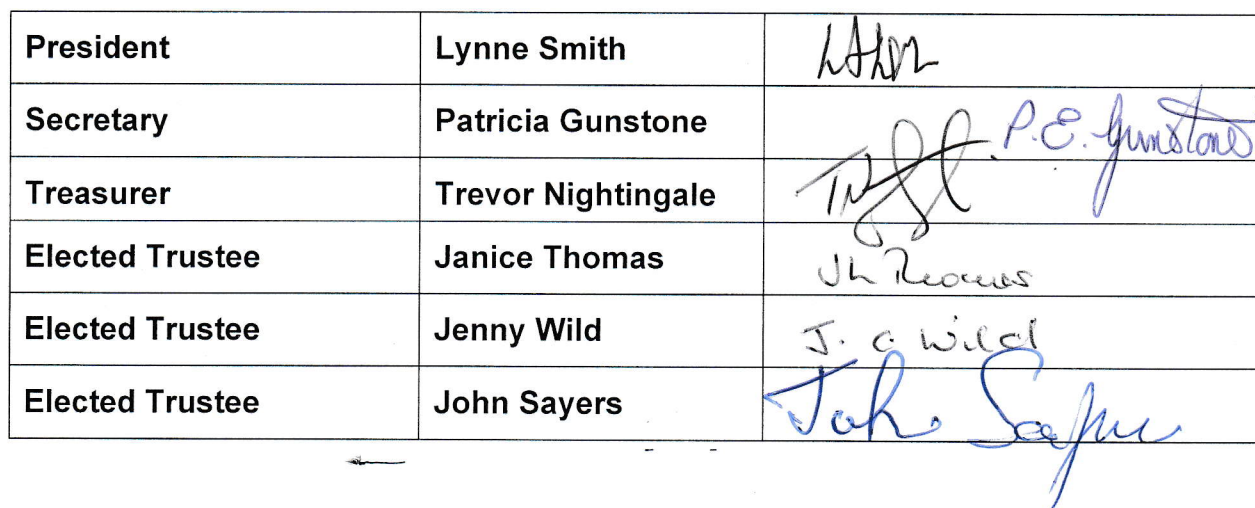 President Lynne Smith
Secretary Patricia Gunstone P.E. Gunstone
Treasurer Trevor Nightingale
Elected Trustee Janice Thomas JL Thomas
Elected Trustee Jenny Wild J. C Wild
Elected Trustee John Sayers John Sayers